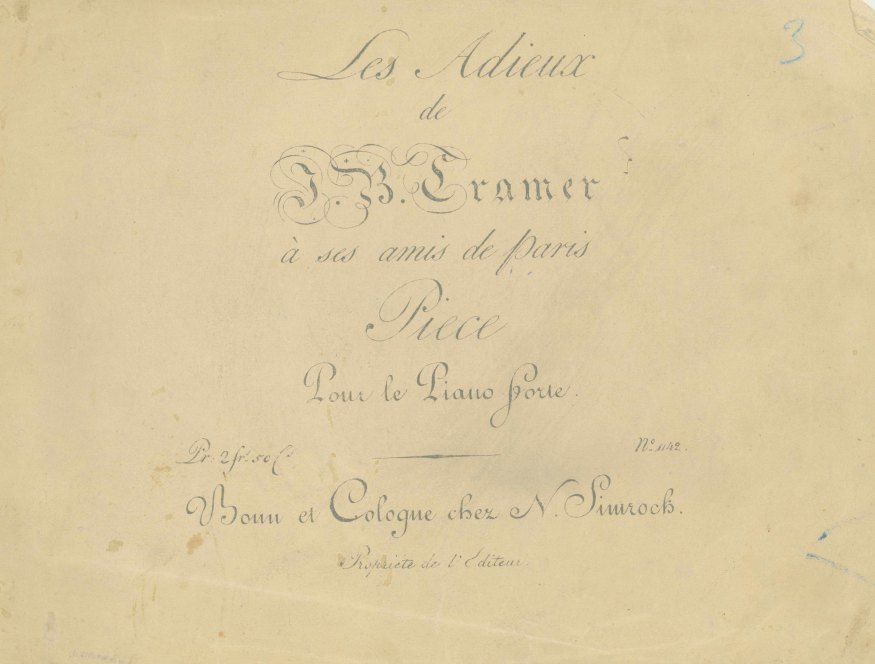 3
Les Adieux
de
J. B. Cramer
à ses amis de Paris
Piece
Pour le Piano Forte.
Pr: 2 fr. 50 Cs
No. 1142.
Bonn et Cologne chez N. Simrock.
Propriété de l'Editeur.